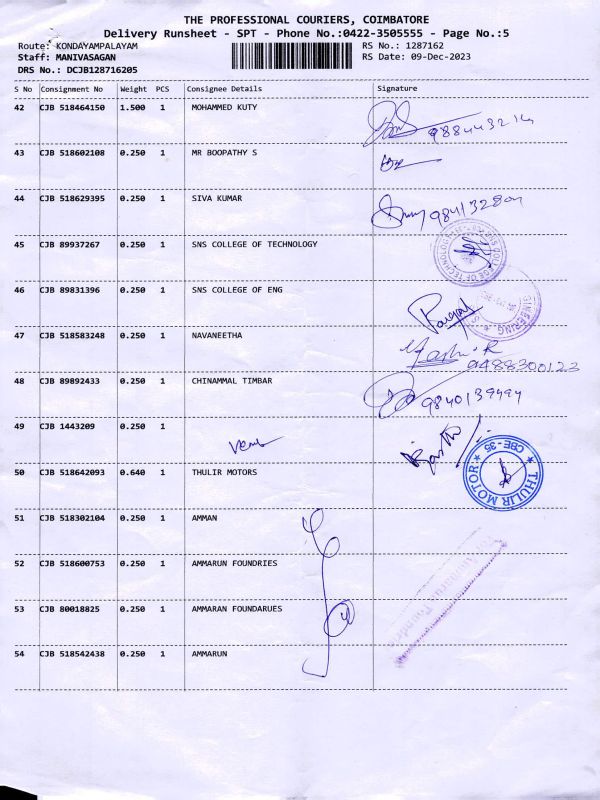 THE PROFESSIONAL COURIERS, COIMBATORE
Delivery Runsheet - SPT - Phone No.:0422-3505555 - Page No.:5
Route: KONDAYAMPALAYAM RS No.: 1287162
Staff: MANIVASAGAN RS Date: 09-Dec-2023
DRS No.: DCJB128716205
S No Consignment No Weight PCS Consignee Details Signature
42 CJB 518464150 1.500 1 MOHAMMED KUTY
43 CJB 518602108 0.250 1 MR BOOPATHY S
44 CJB 518629395 0.250 1 SIVA KUMAR
45 CJB 89937267 0.250 1 SNS COLLEGE OF TECHNOLOGY
46 CJB 89831396 0.250 1 SNS COLLEGE OF ENG
47 CJB 518583248 0.250 1 NAVANEETHA
9488300123
48 CJB 89892433 0.250 1 CHINAMMAL TIMBAR
9840139494
49 CJB 1443209 0.250 1
50 CJB 518642093 0.640 1 THULIR MOTORS
THULIR MOTOR CBE-35
51 CJB 518302104 0.250 1 AMMAN
52 CJB 518600753 0.250 1 AMMARUN FOUNDRIES
53 CJB 80018825 0.250 1 AMMARAN FOUNDARUES
54 CJB 518542438 0.250 1 AMMARUN